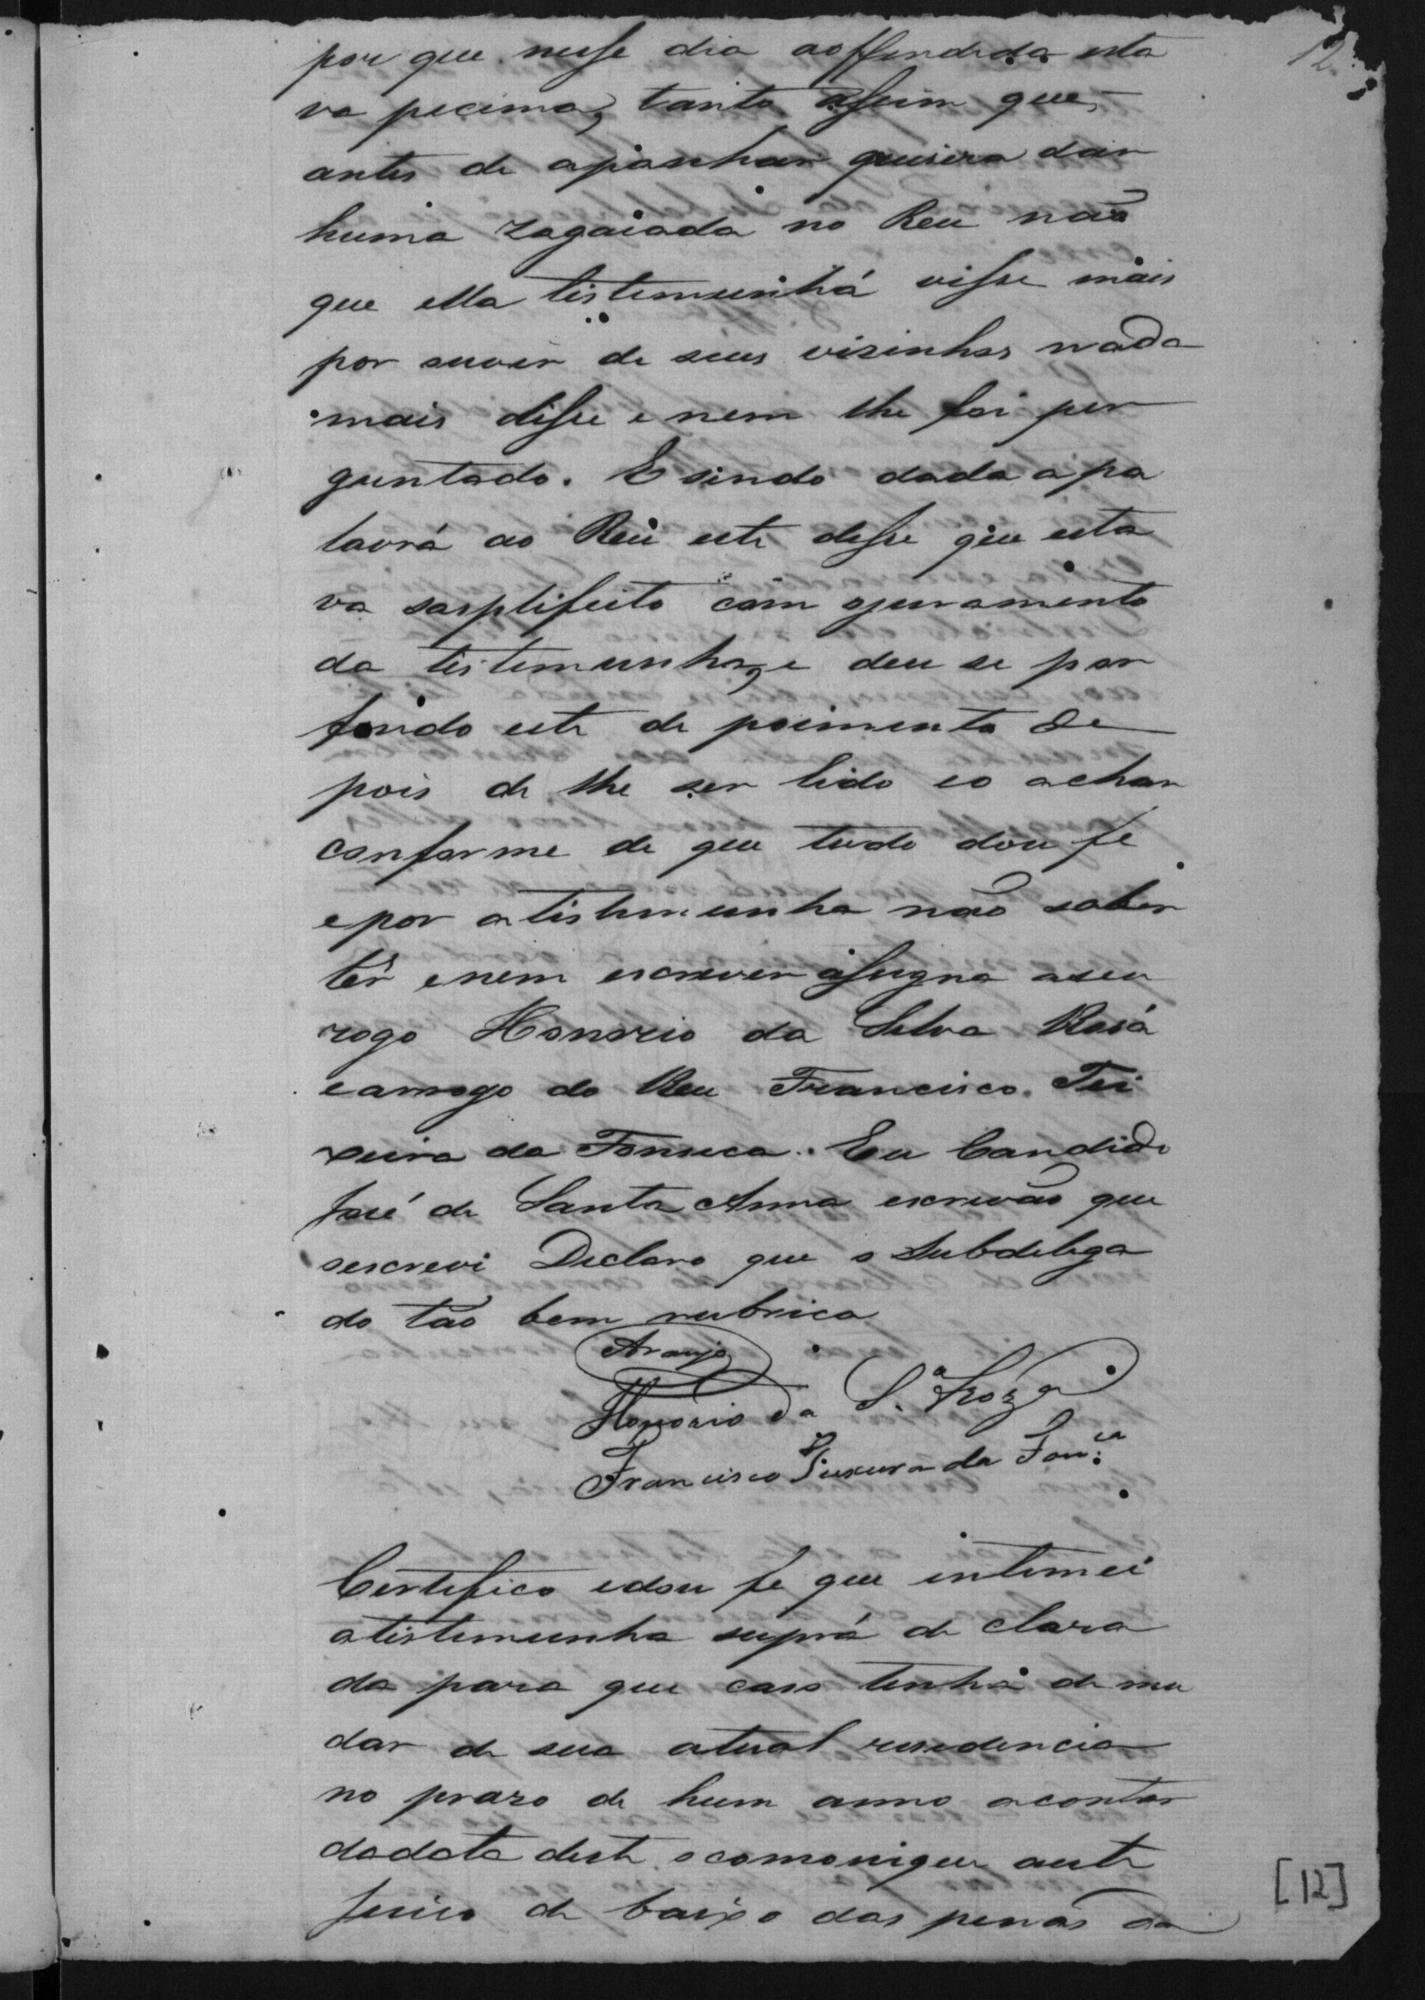 12.
por que nesse dia aoffendida esta
va pecima, tanto assim que,
antes de apanhar quisera dar
huma zagaiada no Reu não
que ella testemunhá visse mais
por ouvir de seus visinhos nada
mais disse e nem lhe foi per
guntado. E sindo dada apa
lavrá ao Reu este desse que esta
va sasptifeito com ojuramento
da testemunha, e deu se por
findo este de poimento De
pois de lhe ser lido eo achar
conforme de que tudo dou fe
epor atestemunha não saber
ler enem escrever assigna aseu
rogo Honorio da Silva Rosá
earrogo do Reu Francisco Tei
xeira da Fonseca. Eu Candido
José de Santa Anna escrivão que
escrevi Declaro que o Subdelega
do tão bem rubrica
Araujo
Honorio da S.ª Roza
Francisco Teixeira da Fon.ca
Certefico edou fe que intimei
atestemunha suprá de clara
da para que caso tenha de mu
dar de sua atual residencia
no prazo de hum anno acontar
dadata deste o comonique aeste
Juizo de baixo das penas da
[12]